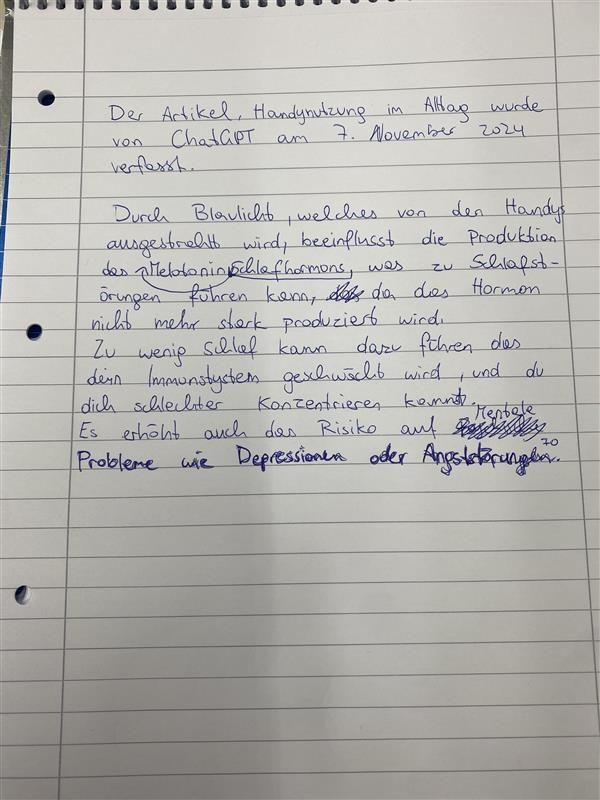 Der Artikel, Handynutzung im Alltag wurde
von ChatGPT am 7. November 2024
verfasst.
Durch Blaulicht, welches von den Handys
ausgestrahlt wird, beeinflusst die Produktion
des Melatonin Schlafhormons, was zu Schlafst-
örungen führen kann, da das Hormon
nicht mehr stark produziert wird.
Zu wenig Schlaf kann dazu führen das
dein Immunstystem geschwächt wird, und du
dich schlechter Konzentrieren kannst.
Es erhöht auch das Risiko auf Mentale
Probleme wie Depressionen oder Angststörungen. 70